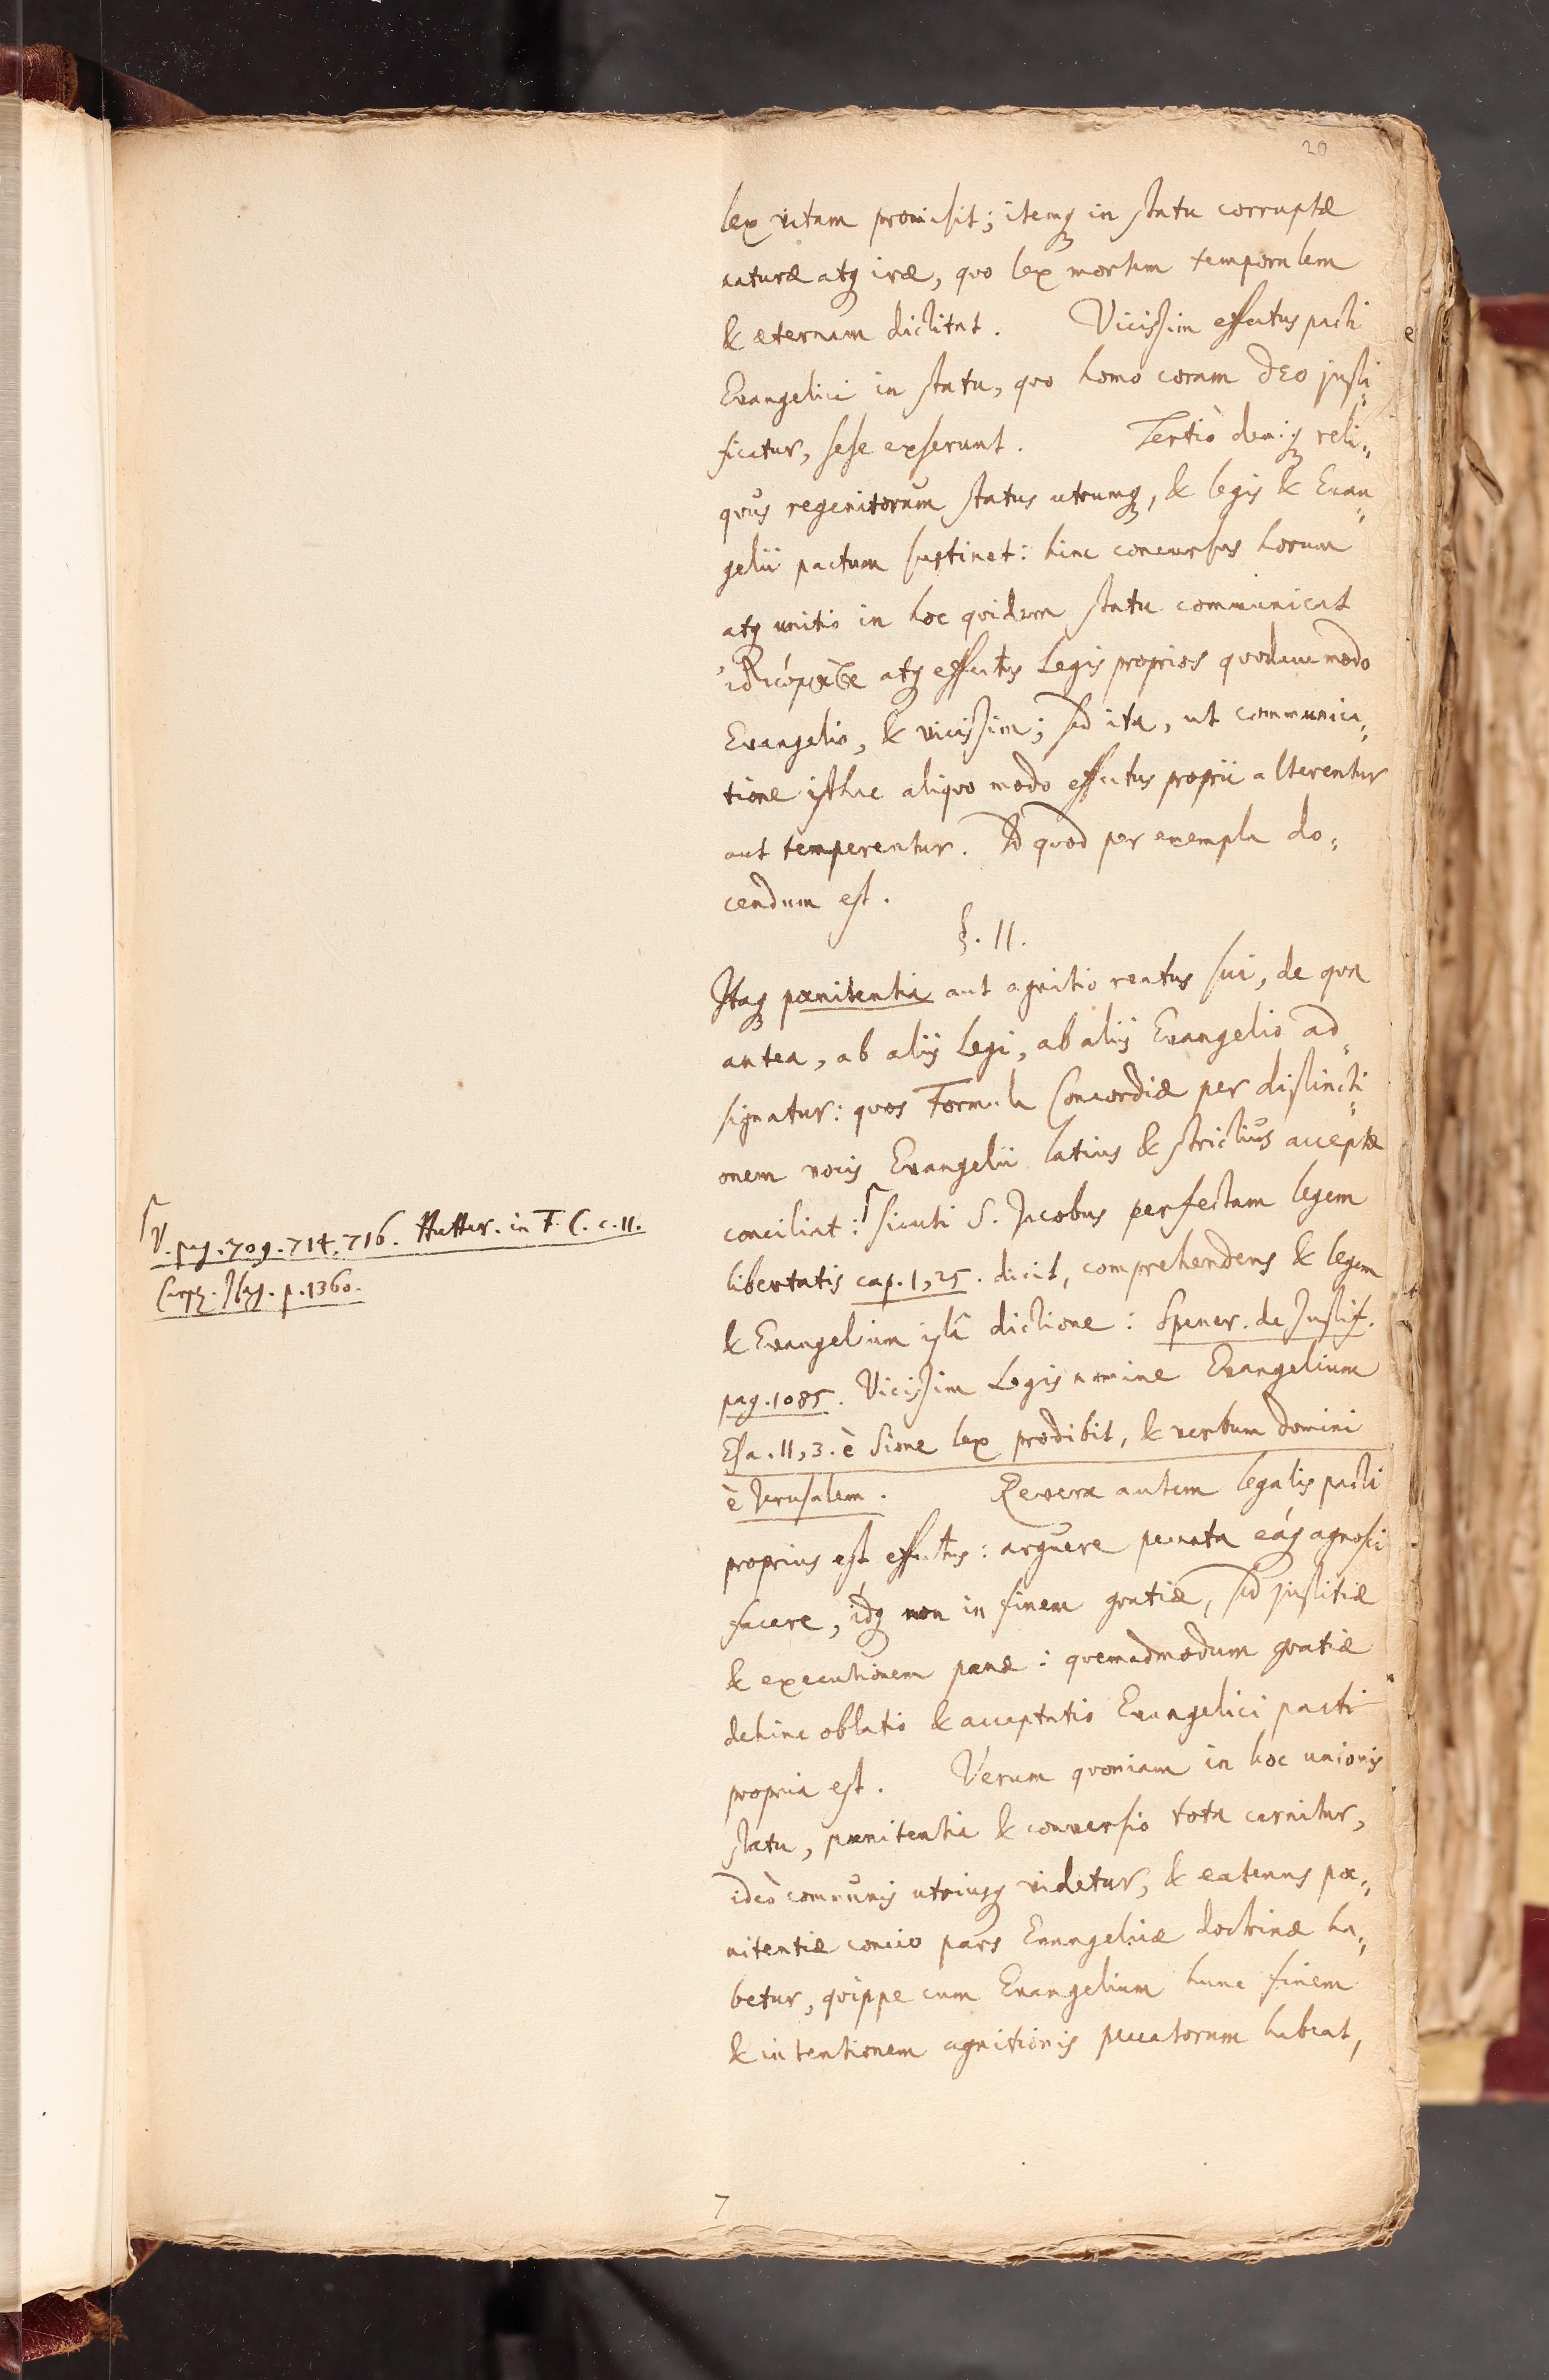 20
lex vitam promisit; itemq₃ in statu corruptæ
naturæ atq₃ iræ, quo lex mortem temporalem
& æternam dictitat. Vicissim effectus pacti
Evangelici in statu, quo homo coram DEO justi„
ficatur, sese exserunt. Tertiò deniq₃ reli„
qvus regenitorum status utrumq₃, & legis & Evan„
gelii pactum sustinet: hinc concursus horum
atq₃ unitio in hoc qvidem statu communicat
ἰδιώματα atq₃ effectus Legis proprios qvodammodo
Evangelio, & vicissim; sed ita, ut communica„
tione isthac aliqvo modo effectus proprii alterentur
aut temperentur. Id quod per exempla do„
cendum est.
§. 11.
Itaq₃ pœnitentia aut agnitio reatus sui, de qva
antea, ab aliis Legi, ab aliis Evangelio ad„
signatur: qvos Formula Concordiæ per distincti„
onem vocis Evangelii latius & strictiùs acceptæ
conciliat:⌈ sicuti S. Jacobus perfectam legem
⌈V. pag. 709. 714. 716. Hutter. in F. C. c. 11.
Carpz. Isag. p. 1360.
libertatis cap. 1, 25. dicit, comprehendens & legem
& Evangelium istâ dictione: Spener. de Justif.
pag. 1085. Vicissim Legis nomine Evangelium
Esa. II, 3. è Sione lex prodibit, & verbum domini
è Jerusalem. Revera autem legalis pacti
proprius est effectus: arguere peccata eáq₃ agnosci
facere, idq₃ non in finem gratiæ, sed justitiæ
& executionem pœnæ: qvemadmodum gratiæ
dehinc oblatio & acceptatio Evangelici pacti
propria est. Verum qvoniam in hoc unionis
statu, pœnitentia & conversio tota cernitur,
ideò communis utriusq₃ videtur, & eatenus pœ„
nitentiæ concio pars Evangelicæ doctrinæ ha„
betur, qvippe cum Evangelium hunc finem
& intentionem agnitionis peccatorum habeat,
7